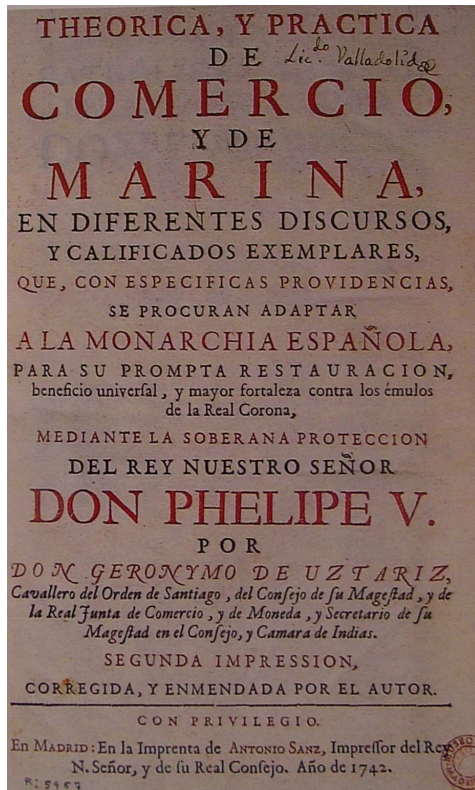 THEORICA, Y PRACTICA
DE
Lic.do Valladolid
COMERCIO,
Y DE
MARINA,
EN DIFERENTES DISCURSOS,
Y CALIFICADOS EXEMPLARES,
QUE, CON ESPECIFICAS PROVIDENCIAS,
SE PROCURAN ADAPTAR
A LA MONARCHIA ESPAÑOLA,
PARA SU PROMPTA RESTAURACION,
beneficio univerſal, y mayor fortaleza contra los émulos
de la Real Corona,
MEDIANTE LA SOBERANA PROTECCION
DEL REY NUESTRO SEÑOR
DON PHELIPE V.
POR
DON GERONYMO DE UZTARIZ,
Cavallero del Orden de Santiago, del Conſejo de ſu Mageſtad, y de
la Real Junta de Comercio, y de Moneda, y Secretario de ſu
Mageſtad en el Conſejo, y Camara de Indias.
SEGUNDA IMPRESSION,
CORREGIDA, Y ENMENDADA POR EL AUTOR.
CON PRIVILEGIO.
En MADRID: En la Imprenta de ANTONIO SANZ, Impreſſor del Rey
N. Señor, y de ſu Real Conſejo. Año de 1742.
R: 5957
MADRID